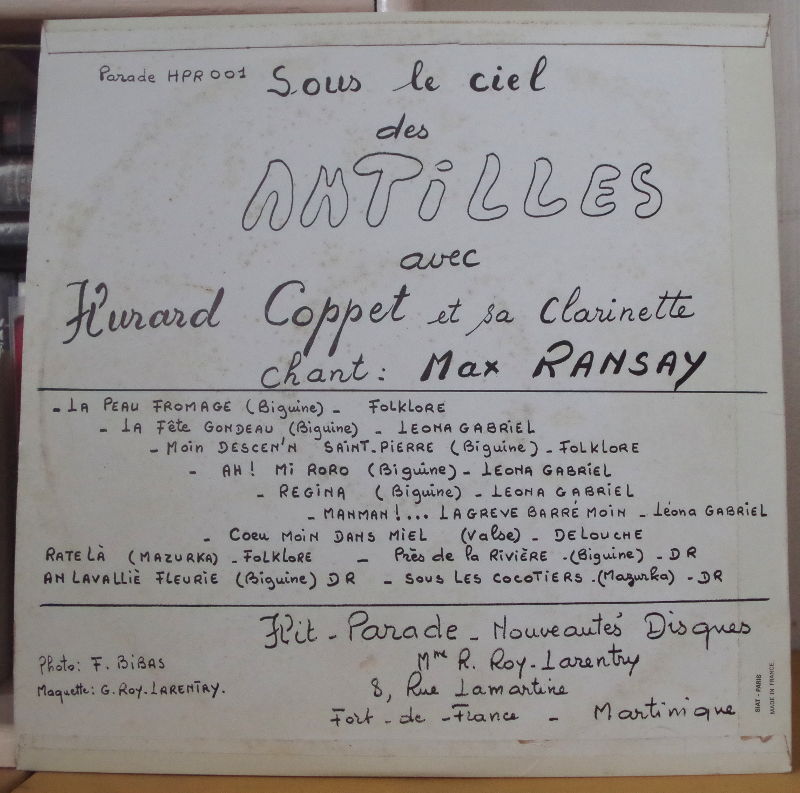 Parade HPR 001
Sous le ciel
des
ANTiLLES
avec
Hurard Coppet et sa Clarinette
chant: Max RANSAY
- LA PEAU FROMAGE (Biguine) - FOLKLORE
- LA Fête GONDEAU (Biguine) - LEONA GABRIEL
- Moin DESCEN'N SAINT-PIERRE (Biguine) - FOLKLORE
- AH! Mi RORO (Biguine) - LEONA GABRIEL
- REGINA (Biguine) - LEONA GABRIEL
- MANMAN!... LAGREVE BARRÉ MOIN - Léona GABRIEL
- Coeu MOIN DANS MIEL (Valse) - DELOUCHE
RATE LÀ (MAZURKA) - FOLKLORE - Près de la RIVIÈRE - (Biguine) - DR
AN LAVALLIÈ FLEURIE (Biguine) DR - SOUS LES COCOTIERS - (Mazurka) - DR
Hit - Parade - Nouveautés Disques
Photo: F. BiBAS
Mme R. Roy-Larentry
Maquette: G. Roy-LARENTRY.
8, Rue Lamartine
Fort - de - France - Martinique
SIAT - PARIS
MADE IN FRANCE